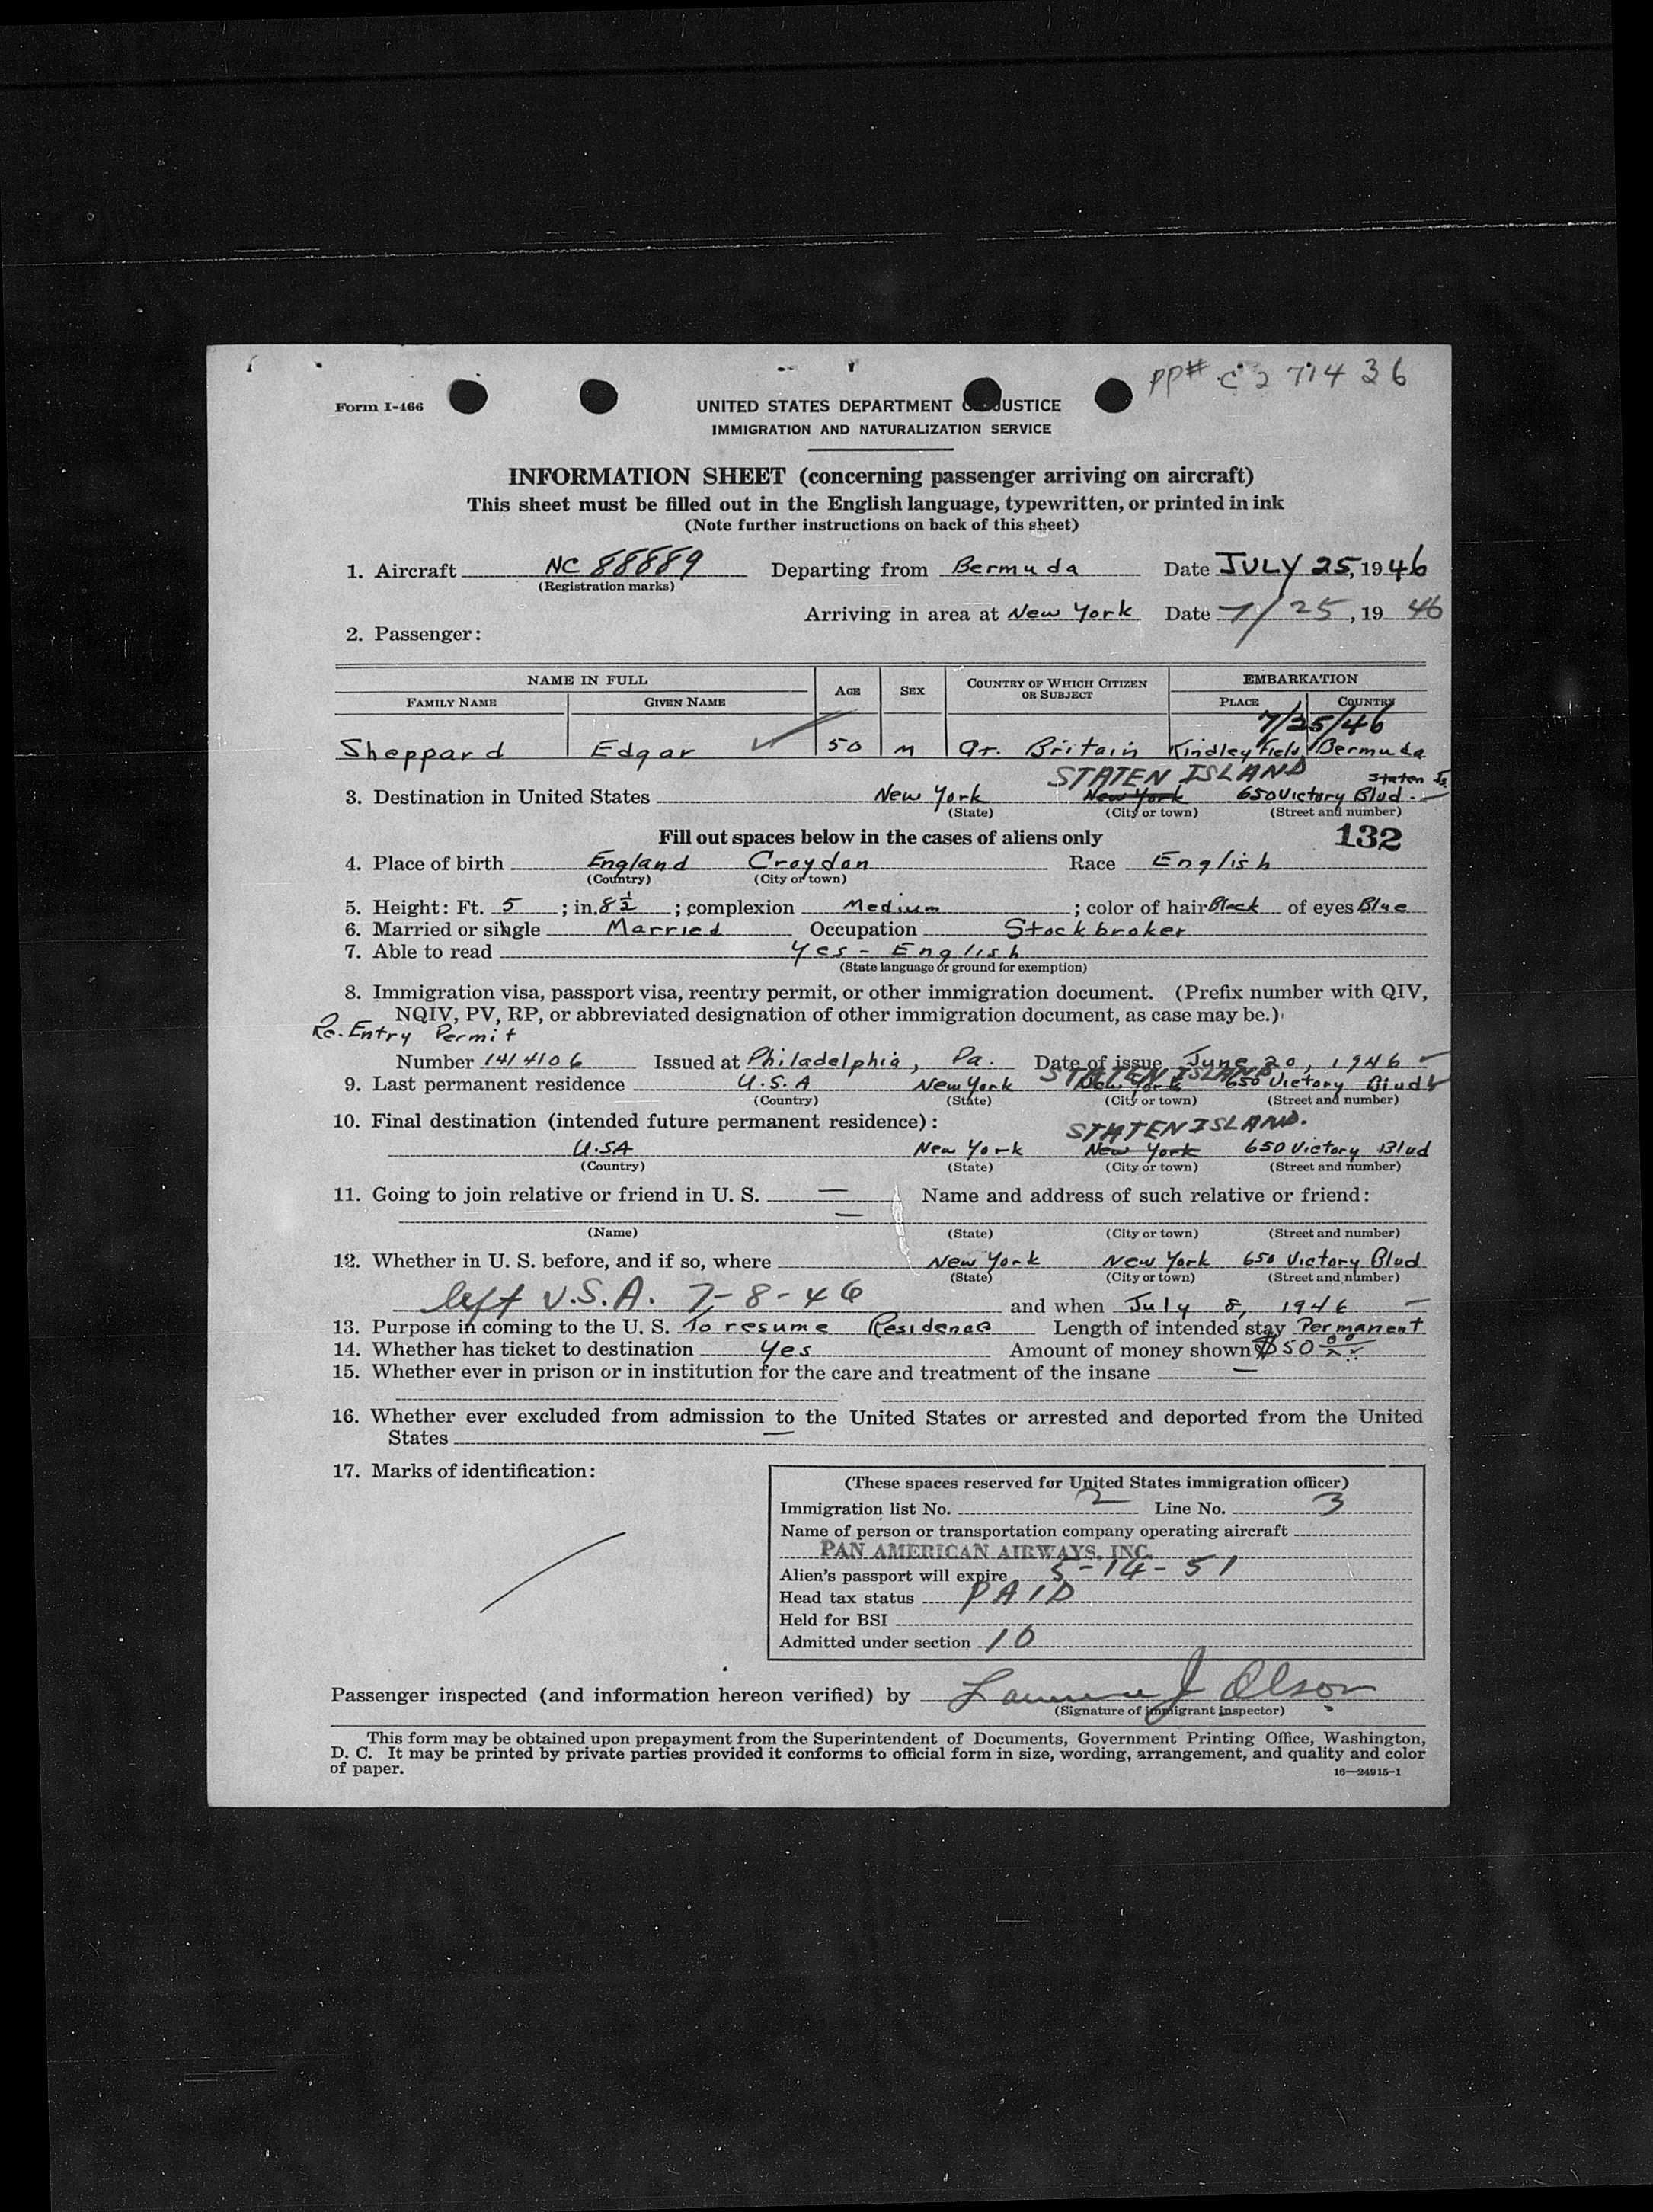 PP# C271436
Form I-466
UNITED STATES DEPARTMENT OF JUSTICE
IMMIGRATION AND NATURALIZATION SERVICE
INFORMATION SHEET (concerning passenger arriving on aircraft)
This sheet must be filled out in the English language, typewritten, or printed in ink
(Note further instructions on back of this sheet)
1. Aircraft NC 88889 Departing from Bermuda Date JULY 25, 1946
(Registration marks)
Arriving in area at New York Date 7/25, 19 46
2. Passenger:
NAME IN FULL AGE SEX COUNTRY OF WHICH CITIZEN OR SUBJECT EMBARKATION
FAMILY NAME GIVEN NAME PLACE COUNTRY
7/25/46
Sheppard Edgar 50 M Gr. Britain Kindley Field Bermuda
STATEN ISLAND Staten Is.
3. Destination in United States New York New York 650 Victory Blvd.
(State) (City or town) (Street and number)
Fill out spaces below in the cases of aliens only 132
4. Place of birth England Croydon Race English
(Country) (City or town)
5. Height: Ft. 5 ; in. 8½ ; complexion Medium ; color of hair Black of eyes Blue
6. Married or single Married Occupation Stockbroker
7. Able to read Yes - English
(State language or ground for exemption)
8. Immigration visa, passport visa, reentry permit, or other immigration document. (Prefix number with QIV,
NQIV, PV, RP, or abbreviated designation of other immigration document, as case may be.)
Re-Entry Permit
Number 1414106 Issued at Philadelphia, Pa. Date of issue June 20, 1946
STATEN ISLAND
9. Last permanent residence U.S.A New York New York 650 Victory Blvd
(Country) (State) (City or town) (Street and number)
10. Final destination (intended future permanent residence):
STATEN ISLAND.
U.SA New York New York 650 Victory Blvd
(Country) (State) (City or town) (Street and number)
11. Going to join relative or friend in U. S. — Name and address of such relative or friend:
—
(Name) (State) (City or town) (Street and number)
12. Whether in U. S. before, and if so, where New York New York 650 Victory Blvd
(State) (City or town) (Street and number)
left U.S.A. 7-8-46 and when July 8, 1946
13. Purpose in coming to the U. S. To resume Residence Length of intended stay Permanent
14. Whether has ticket to destination Yes Amount of money shown $50 00/xx
15. Whether ever in prison or in institution for the care and treatment of the insane —
16. Whether ever excluded from admission to the United States or arrested and deported from the United
States —
17. Marks of identification:
(These spaces reserved for United States immigration officer)
Immigration list No. 2 Line No. 3
Name of person or transportation company operating aircraft
PAN AMERICAN AIRWAYS, INC.
Alien's passport will expire 5-14-51
Head tax status PAID
Held for BSI
Admitted under section 10
Passenger inspected (and information hereon verified) by Lawrence J Olson
(Signature of immigrant inspector)
This form may be obtained upon prepayment from the Superintendent of Documents, Government Printing Office, Washington,
D. C. It may be printed by private parties provided it conforms to official form in size, wording, arrangement, and quality and color
of paper.
16—24915-1